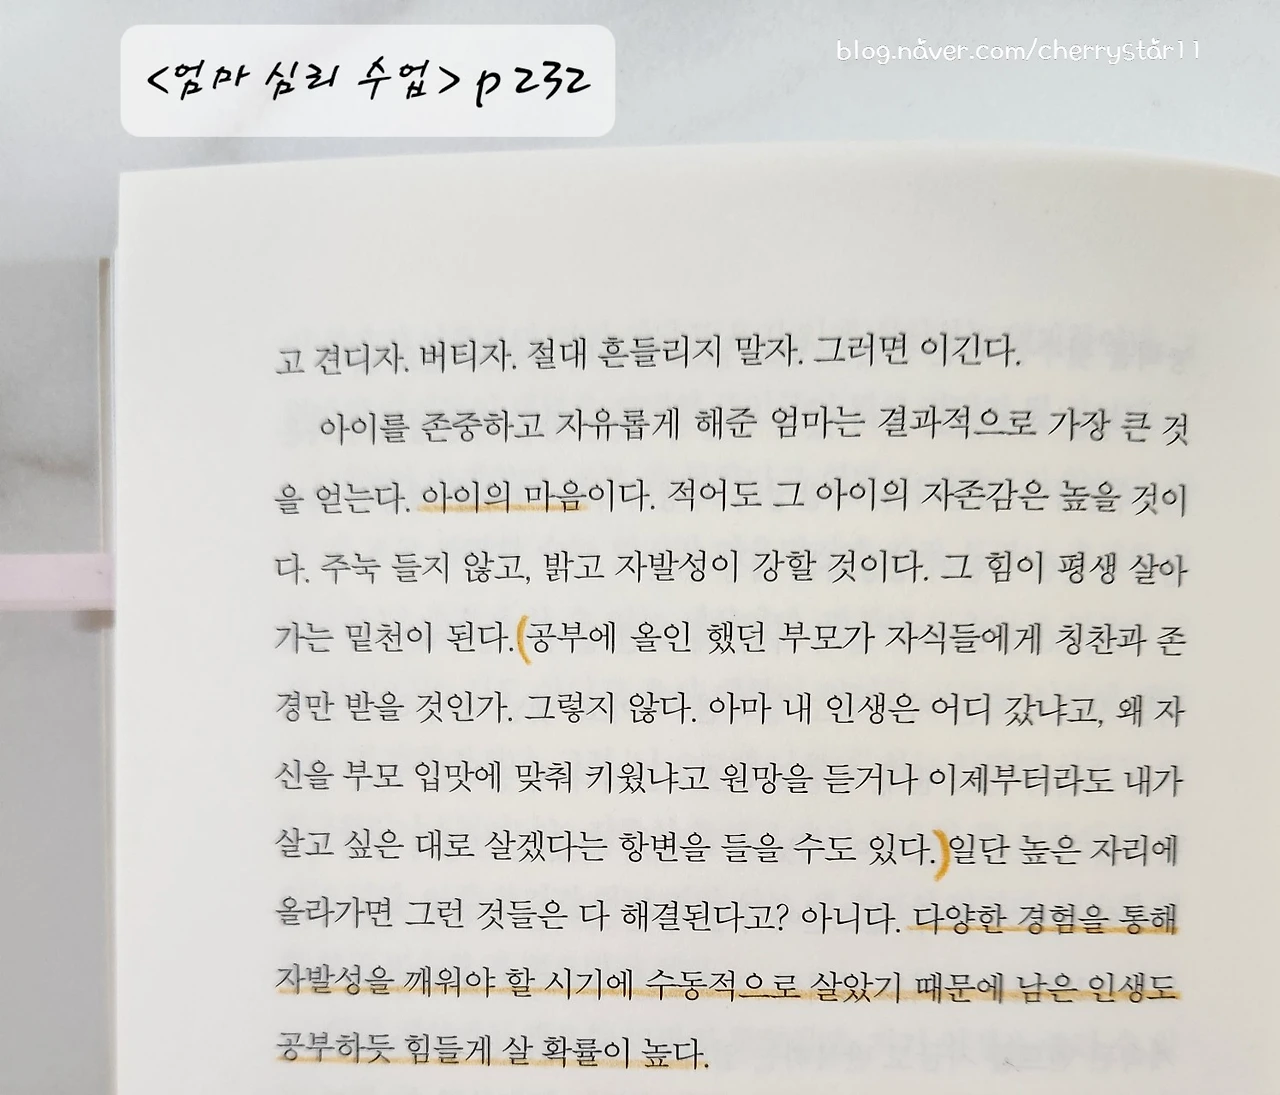 <엄마 심리 수업> p 232
blog.naver.com/cherrystar11
고 견디자. 버티자. 절대 흔들리지 말자. 그러면 이긴다.
아이를 존중하고 자유롭게 해준 엄마는 결과적으로 가장 큰 것
을 얻는다. 아이의 마음이다. 적어도 그 아이의 자존감은 높을 것이
다. 주눅 들지 않고, 밝고 자발성이 강할 것이다. 그 힘이 평생 살아
가는 밑천이 된다.(공부에 올인 했던 부모가 자식들에게 칭찬과 존
경만 받을 것인가. 그렇지 않다. 아마 내 인생은 어디 갔냐고, 왜 자
신을 부모 입맛에 맞춰 키웠냐고 원망을 듣거나 이제부터라도 내가
살고 싶은 대로 살겠다는 항변을 들을 수도 있다.)일단 높은 자리에
올라가면 그런 것들은 다 해결된다고? 아니다. 다양한 경험을 통해
자발성을 깨워야 할 시기에 수동적으로 살았기 때문에 남은 인생도
공부하듯 힘들게 살 확률이 높다.